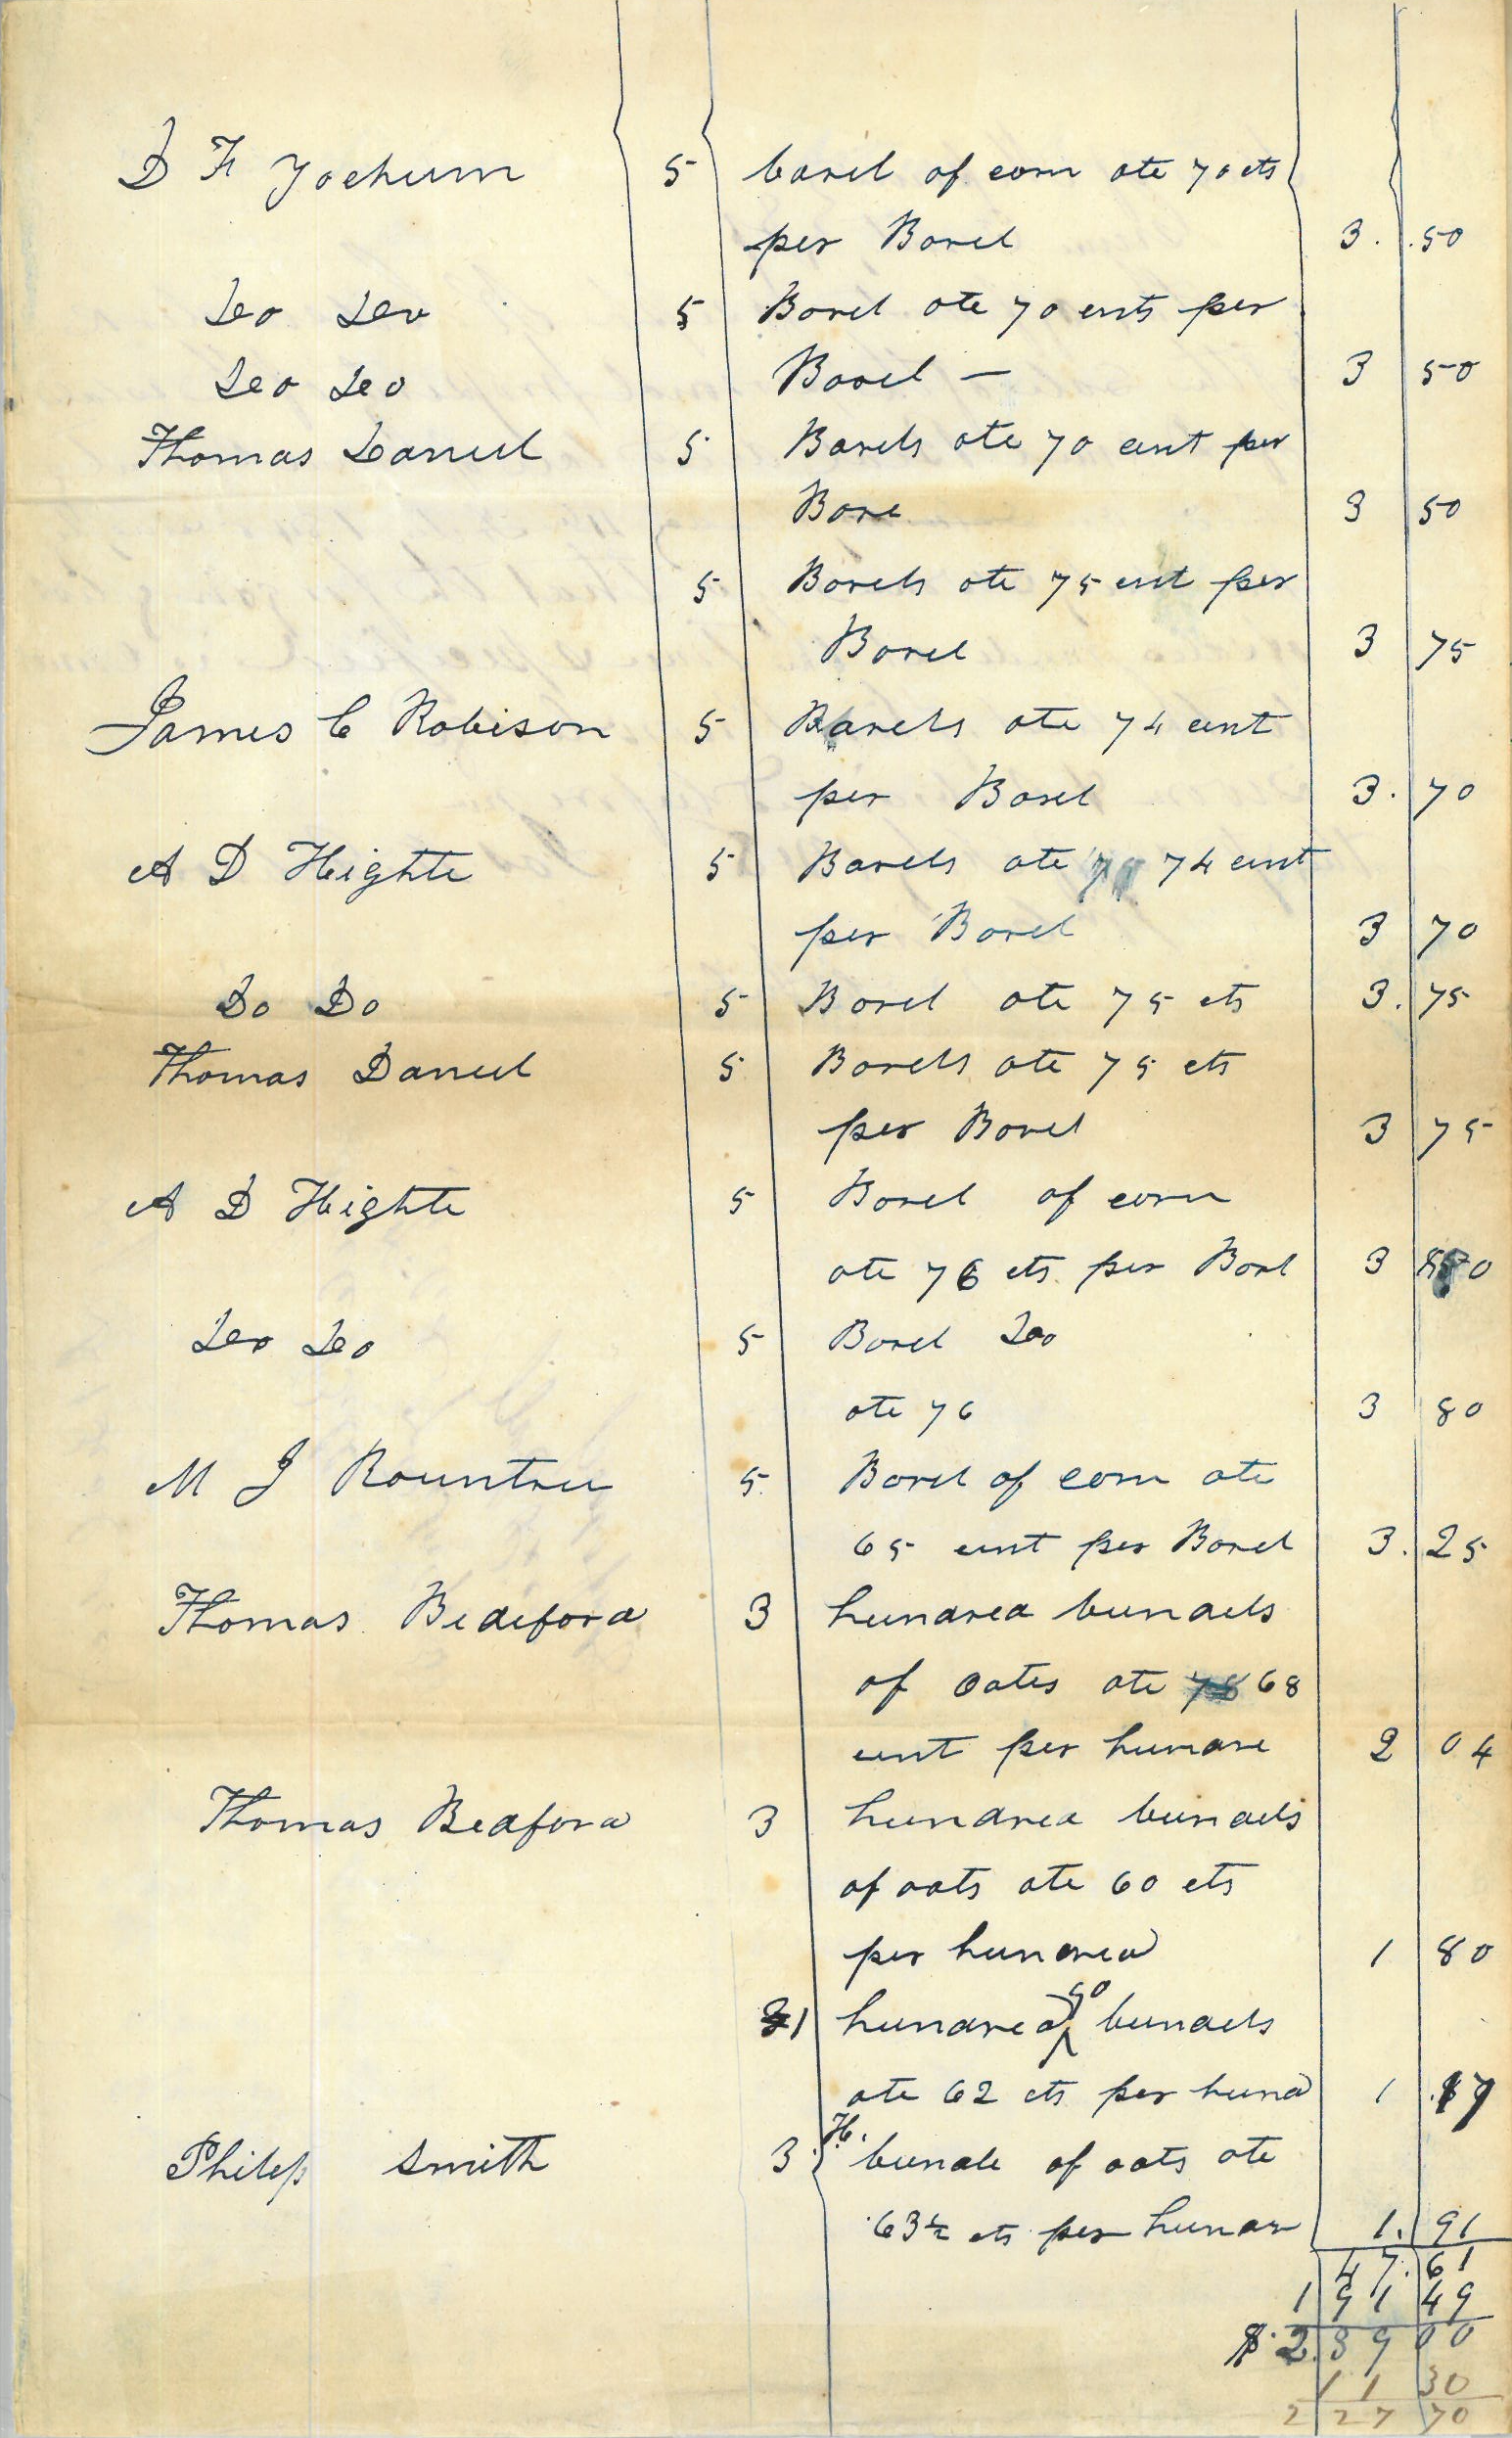 D F Yochum 5 barel of corn ate 70 cts
per Barel 3. .50
Deo Deo 5 Barel ate 70 ents per
Deo Deo Barel — 3 50
Thomas Daneel 5 Barels ate 70 cent per
Bare 3 50
5 Barels ate 75 cent per
Barel 3 75
James C Robison 5 Barels ate 74 cent
per Barel 3. 70
A D Highte 5 Barels ate 74 cent
per Barel 3 70
Do Do 5 Barel ate 75 cts 3. 75
Thomas Daneel 5 Barels ate 75 cts
per Barel 3 75
A D Highte 5 Barel of corn
ate 76 cts per Barl 3 80
Deo Deo 5 Barel Deo
ate 76 3 80
M J Rountree 5 Barel of corn ate
65 cent per Barel 3. 25
Thomas Bedeford 3 hundred bundels
of Oates ate 68
cent per hundre 2 04
Thomas Bedford 3 hundred bundels
of oats ate 60 cts
per hundred 1 80
1 hundred 90 bundels
ate 62 cts per hund 1 .17
Philep Smith 3 H. bundle of oats ate
63½ cts per hundr 1. 91
47. 61
191 49
$ 239 00
11 30
227 70